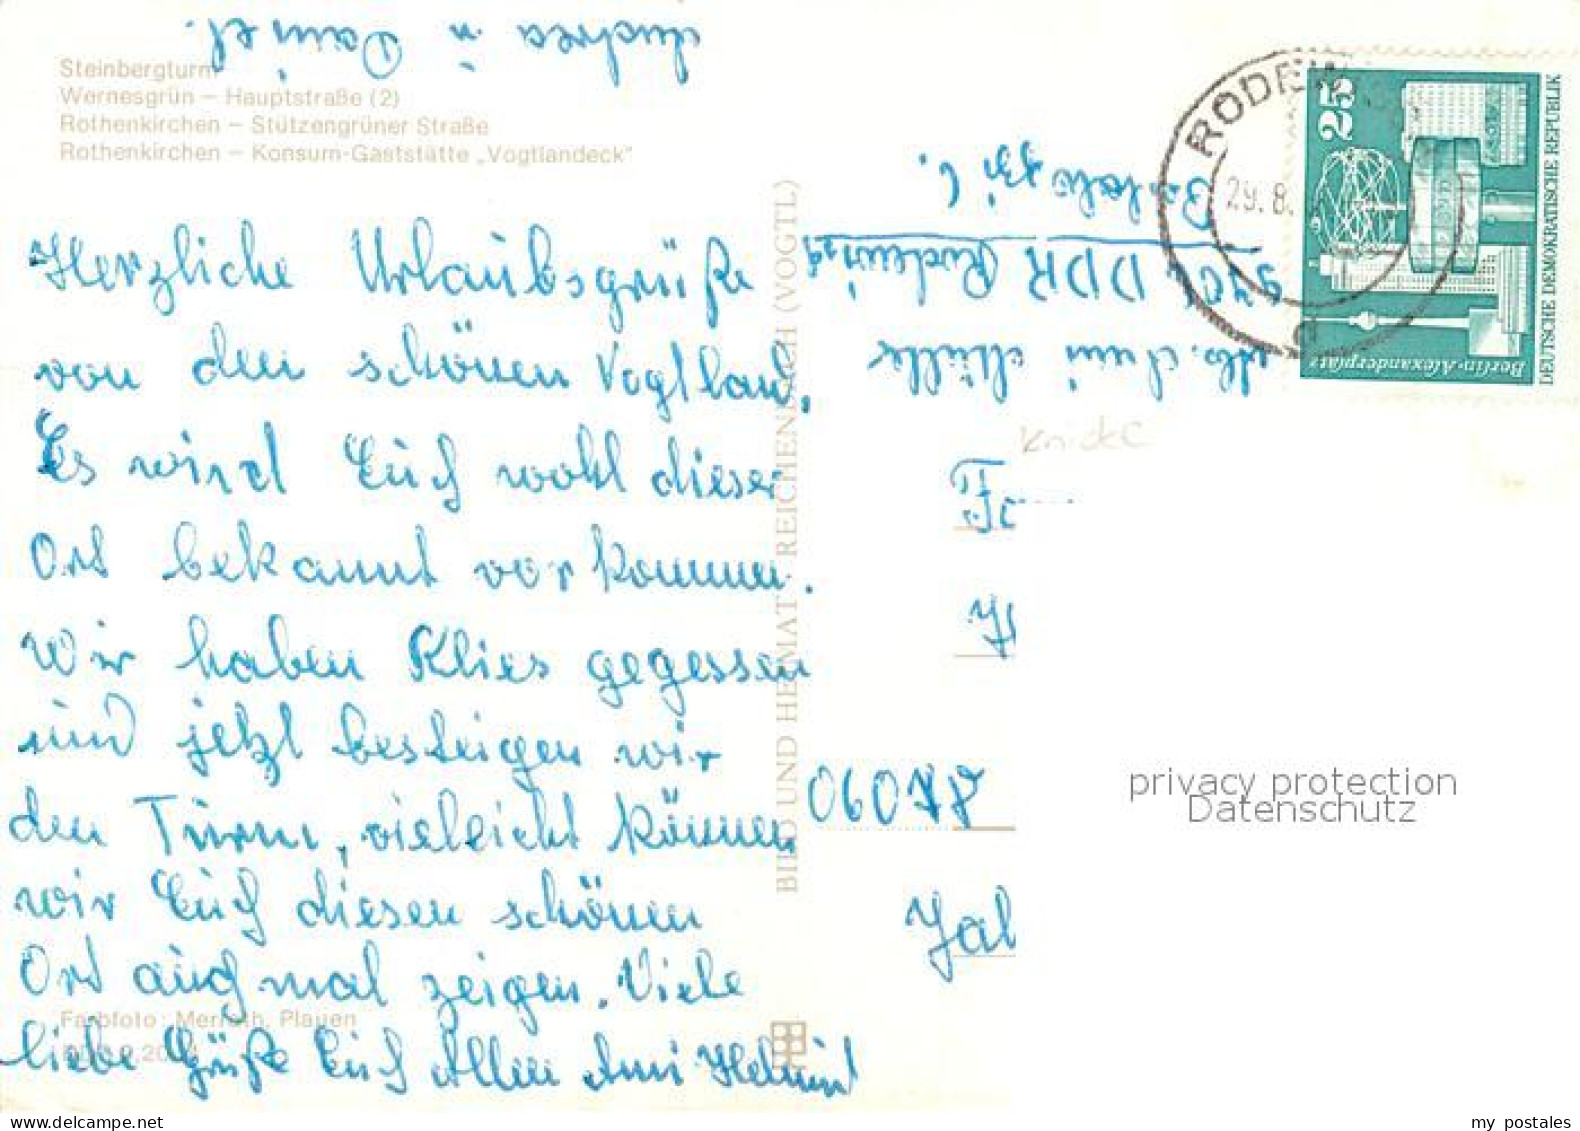 Steinbergturm
Wernesgrün – Hauptstraße (2)
Rothenkirchen – Stützengrüner Straße
Rothenkirchen – Konsum-Gaststätte „Vogtlandeck"
Herzliche Urlaubsgrüße
von den schönen Vogtland.
Es wird Euch wohl dieser
Ort bekannt vor kommen.
Wir haben Klies gegessen
und jetzt besteigen wir
den Turm, vieleicht können
wir Euch diesen schönen
Ort auch mal zeigen. Viele
liebe Grüße Euch Allen Ami Helmut
Andrea u Daniel.
Farbfoto: Merfarth, Plauen
BILD UND HEIMAT REICHENBACH (VOGTL)
Abs. Ami Müller
DDR Rodewisch
RODEW
29.8.
25
Berlin-Alexanderplatz
DEUTSCHE DEMOKRATISCHE REPUBLIK
Knicke
Jal
privacy protection
Datenschutz
my postales
www.delcampe.net